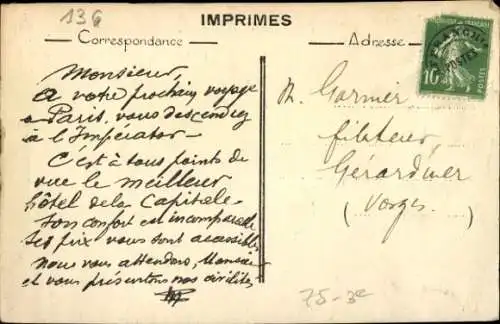 136
IMPRIMES
Correspondance
Adresse
AFFRANCHts
POSTES
10c
POSTES
Monsieur,
A votre prochain voyage
a Paris, vous descendrez
à l'Impérator -
C'est à tous points de
vue le meilleur
hôtel de la Capitale
Son confort est incomparable
Ses prix vous sont accessibles
Nous vous attendons, Monsieur
et vous présentons nos civilités
M. Garnier
filateur
Gérardmer
(Vosges)
75-3e